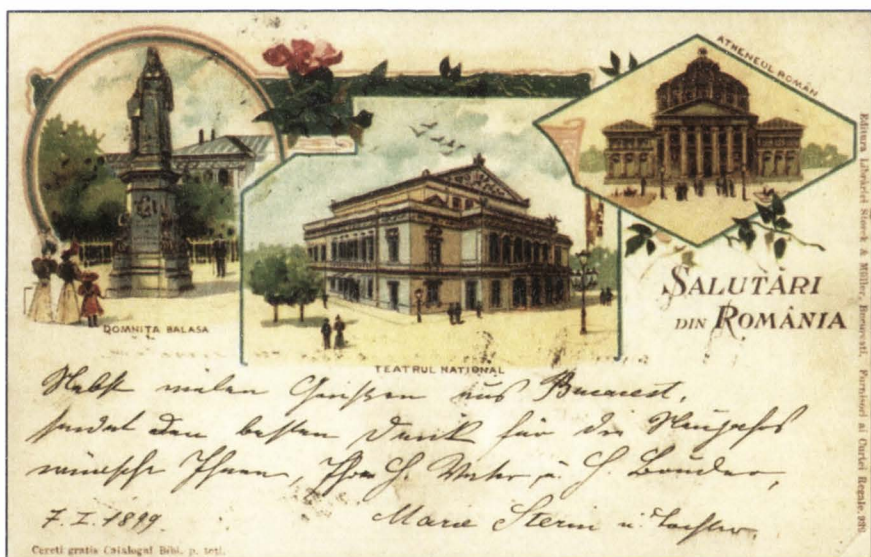 ATHENEUL ROMÂN
DOMNITA BALASA
TEATRUL NATIONAL
SALUTĂRI
DIN ROMÂNIA
Editura Librăriei Storck & Müller, Bucuresti, Furnisori ai Curtei Regale.
Nebst vielen Grüßen aus Bucarest,
sendet den besten Dank für die Neujahrs
wünsche Ihnen, H. Vater u. H. Bruder,
7. I. 1899
Marie Sterin u. Tochter.
Cereti gratis Catalogul Bibl. p. toti.